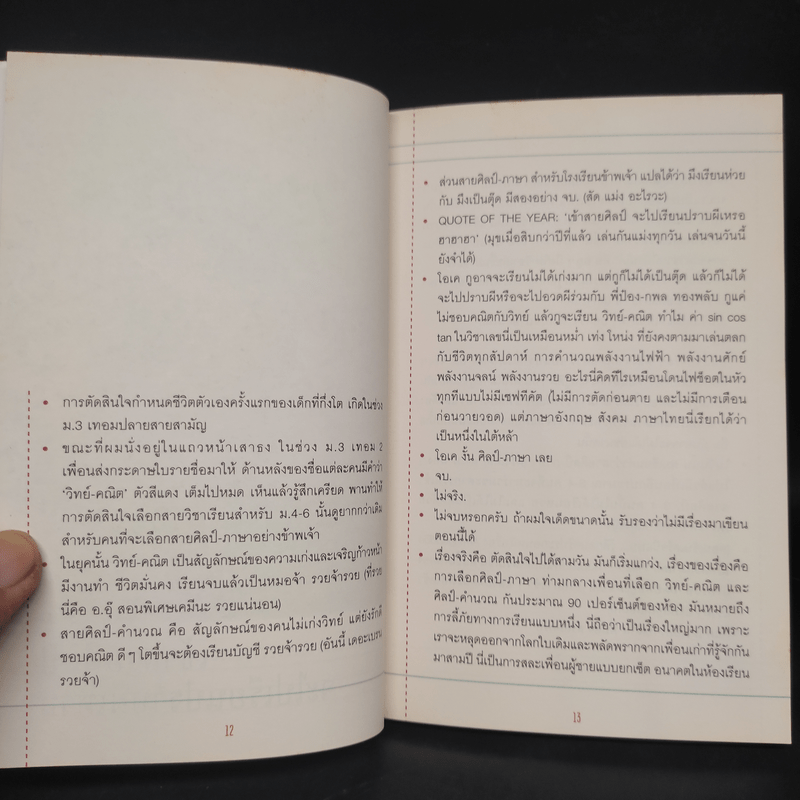 การตัดสินใจกำหนดชีวิตตัวเองครั้งแรกของเด็กที่กึ่งโต เกิดในช่วง
ม.3 เทอมปลายสายสามัญ
ขณะที่ผมนั่งอยู่ในแถวหน้าเสาธง ในช่วง ม.3 เทอม 2
เพื่อนส่งกระดาษใบรายชื่อมาให้ ด้านหลังของชื่อแต่ละคนมีคำว่า
'วิทย์-คณิต' ตัวสีแดง เต็มไปหมด เห็นแล้วรู้สึกเครียด พานทำให้
การตัดสินใจเลือกสายวิชาเรียนสำหรับ ม.4-6 นั้นดูยากกว่าเดิม
สำหรับคนที่จะเลือกสายศิลป์-ภาษาอย่างข้าพเจ้า
ในยุคนั้น วิทย์-คณิต เป็นสัญลักษณ์ของความเก่งและเจริญก้าวหน้า
มีงานทำ ชีวิตมั่นคง เรียนจบแล้วเป็นหมอจ้า รวยจ้ารวย (ที่รวย
นี่คือ อ.อุ๊ สอนพิเศษเคมีนะ รวยแน่นอน)
สายศิลป์-คำนวณ คือ สัญลักษณ์ของคนไม่เก่งวิทย์ แต่ยังรักดี
ชอบคณิต ดีๆ โตขึ้นจะต้องเรียนบัญชี รวยจ้ารวย (อันนี้ เดอะเบรน
รวยจ้า)
12
ส่วนสายศิลป์-ภาษา สำหรับโรงเรียนข้าพเจ้า แปลได้ว่า มึงเรียนห่วย
กับ มึงเป็นตุ๊ด มีสองอย่าง จบ. (สัด แม่ง อะไรวะ)
QUOTE OF THE YEAR: 'เข้าสายศิลป์ จะไปเรียนปราบผีเหรอ
ฮาฮาฮา' (มุขเมื่อสิบกว่าปีที่แล้ว เล่นกันแม่งทุกวัน เล่นจนวันนี้
ยังจำได้)
โอเค กูอาจจะเรียนไม่ได้เก่งมาก แต่กูก็ไม่ได้เป็นตุ๊ด แล้วก็ไม่ได้
จะไปปราบผีหรือจะไปอวดผีร่วมกับ พี่ป๋อง-กพล ทองพลับ กูแค่
ไม่ชอบคณิตกับวิทย์ แล้วกูจะเรียน วิทย์-คณิต ทำไม ค่า sin cos
tan ในวิชาเลขนี่เป็นเหมือนหม่ำ เท่ง โหน่ง ที่ยังคงตามมาเล่นตลก
กับชีวิตทุกสัปดาห์ การคำนวณพลังงานไฟฟ้า พลังงานศักย์
พลังงานจลน์ พลังงานรวย อะไรนี่คิดทีไรเหมือนโดนไฟช็อตในหัว
ทุกทีแบบไม่มีเซฟทีคัต (ไม่มีการตัดก่อนตาย และไม่มีการเตือน
ก่อนวายวอด) แต่ภาษาอังกฤษ สังคม ภาษาไทยนี่เรียกได้ว่า
เป็นหนึ่งในใต้หล้า
โอเค งั้น ศิลป์-ภาษา เลย
จบ.
ไม่จริง.
ไม่จบหรอกครับ ถ้าผมใจเด็ดขนาดนั้น รับรองว่าไม่มีเรื่องมาเขียน
ตอนนี้ได้
เรื่องจริงคือ ตัดสินใจไปได้สามวัน มันก็เริ่มแกว่ง, เรื่องของเรื่องคือ
การเลือกศิลป์-ภาษา ท่ามกลางเพื่อนที่เลือก วิทย์-คณิต และ
ศิลป์-คำนวณ กันประมาณ 90 เปอร์เซ็นต์ของห้อง มันหมายถึง
การลี้ภัยทางการเรียนแบบหนึ่ง นี่ถือว่าเป็นเรื่องใหญ่มาก เพราะ
เราจะหลุดออกจากโลกใบเดิมและพลัดพรากจากเพื่อนเก่าที่รู้จักกัน
มาสามปี นี่เป็นการสละเพื่อนผู้ชายแบบยกเซ็ต อนาคตในห้องเรียน
13